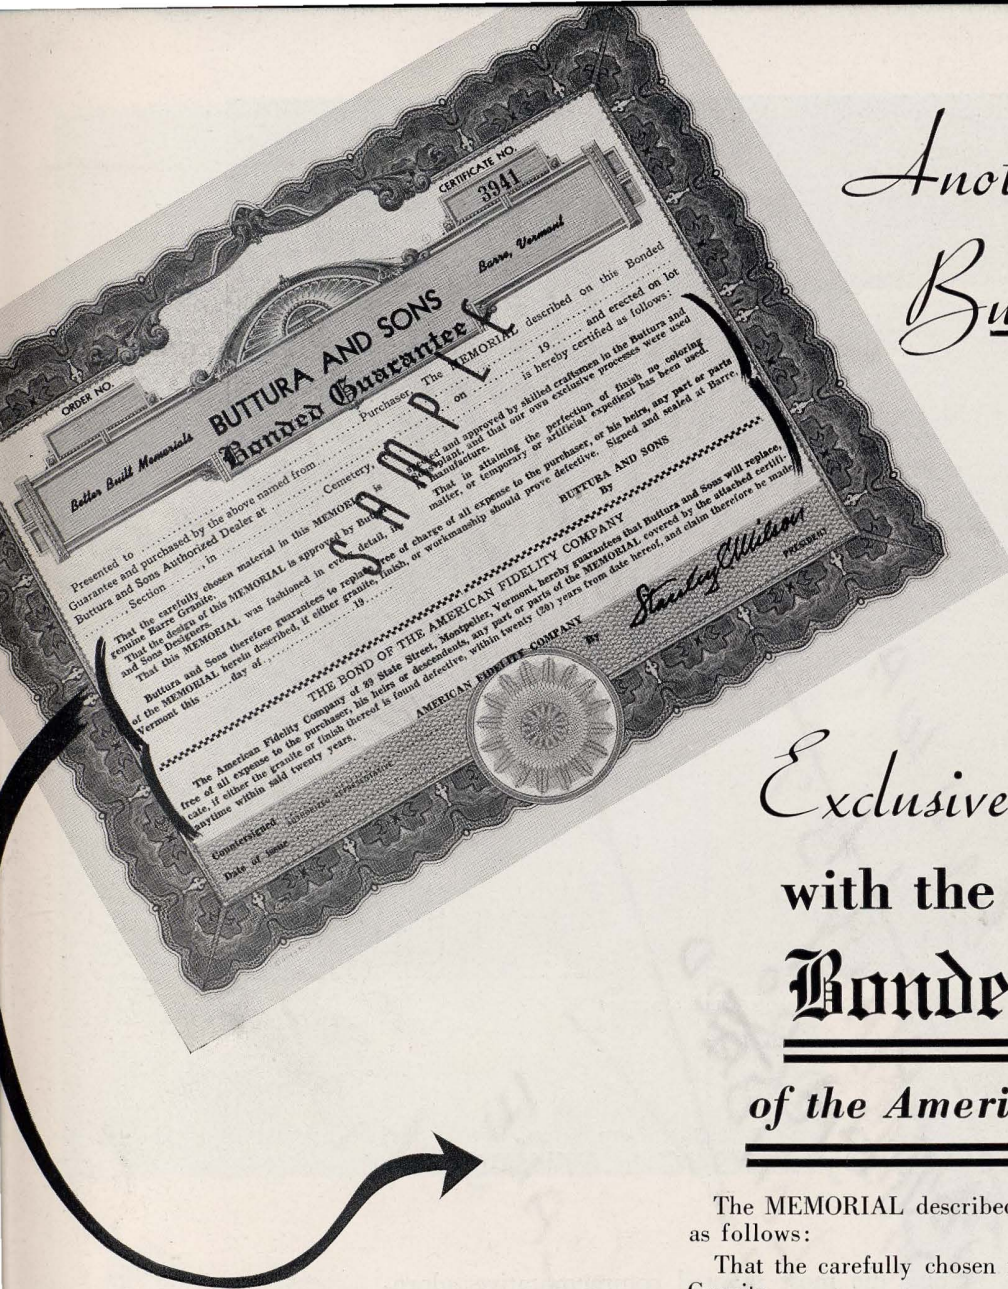 CERTIFICATE NO.
3941
ORDER NO.
Better Built Memorials
BUTTURA AND SONS
Barre, Vermont
Bonded Guarantee
SAMPLE
Presented to
Guarantee and purchased by the above named from Purchaser The MEMORIAL described on this Bonded
Buttura and Sons Authorized Dealer at on 19 and erected on lot
Section in Cemetery, is hereby certified as follows:
That the carefully chosen material in this MEMORIAL is
genuine Barre Granite,
That the design of this MEMORIAL is approved by
and Sons Designers.
That this MEMORIAL was fashioned in every detail,
and approved by skilled craftsmen in the Buttura and
plant, and that our own exclusive processes were used
manufacture.
That in attaining the perfection of finish no coloring
matter, or temporary or artificial expedient has been used.
Buttura and Sons therefore guarantees to replace free of charge of all expense to the purchaser, or his heirs, any part or parts
of the MEMORIAL herein described, if either granite, finish, or workmanship should prove defective. Signed and sealed at Barre,
Vermont this day of 19
BUTTURA AND SONS
By
THE BOND OF THE AMERICAN FIDELITY COMPANY
The American Fidelity Company of 89 State Street, Montpelier, Vermont, hereby guarantees that Buttura and Sons will replace,
free of all expense to the purchaser, his heirs or descendants, any part or parts of the MEMORIAL covered by the attached certifi-
cate, if either the granite or finish thereof is found defective, within twenty (20) years from date hereof, and claim therefore be made
anytime within said twenty years.
AMERICAN FIDELITY COMPANY
By
PRESIDENT
Countersigned
AUTHORIZED REPRESENTATIVE
Date of Issue
Anot
Bu
Exclusive
with the
Bonde
of the Ameri
The MEMORIAL described
as follows:
That the carefully chosen